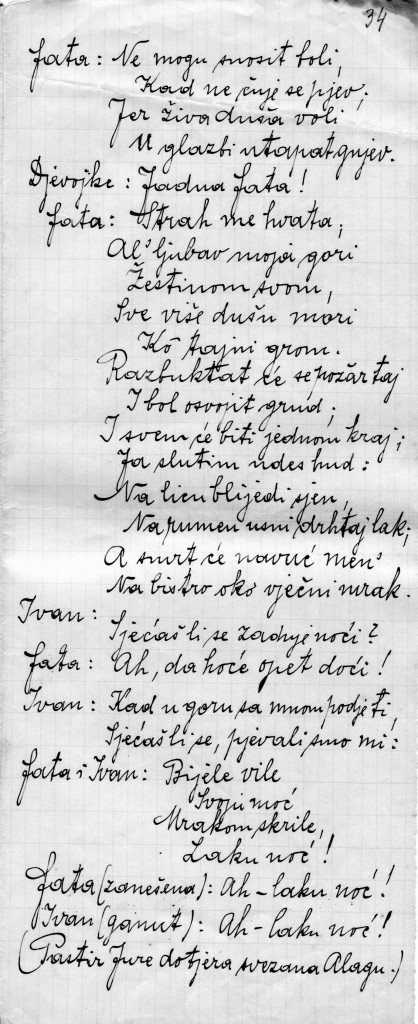 34
Fata: Ne mogu snosit boli,
Kad ne čuje se pjev;
Jer živa duša voli
U glazbi utapat gnjev.
Djevojke: Jadna Fata!
Fata: Strah me hvata;
Al' ljubav moja gori
Žestinom svom,
Sve više dušu mori
Kô tajni grom.
Razbuktat će se požar taj
I bol osvojit grud;
I svem će biti jednom kraj;
Ja slutim udes hud:
Na licu blijedi sjen,
Na rumen usni drhtaj lak;
A smrt će navuć men'
Na bistro oko vječni mrak.
Ivan:
Sjećaš li se zadnje noći?
Fata: Ah, da hoće opet doći!
Ivan: Kad u goru sa mnom podje ti,
Sjećaš li se, pjevali smo mi:
Fata i Ivan: Bijele vile
Svoju moć
Mrakom skrile,
Laku noć!
Fata (zanešena): Ah – laku noć!
Ivan (ganut): Ah – laku noć!
(Pastir Jure dotjera svezana Alagu.)